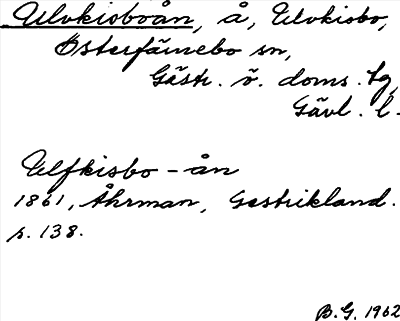 Ulvkisboån, å, Ulvkisbo,
Österfärnebo sn,
Gästr. ö. doms. tg,
Gävl. l.
Ulfkisbo-ån
1861, Åhrman, Gestrikland.
s. 138.
B.G. 1962